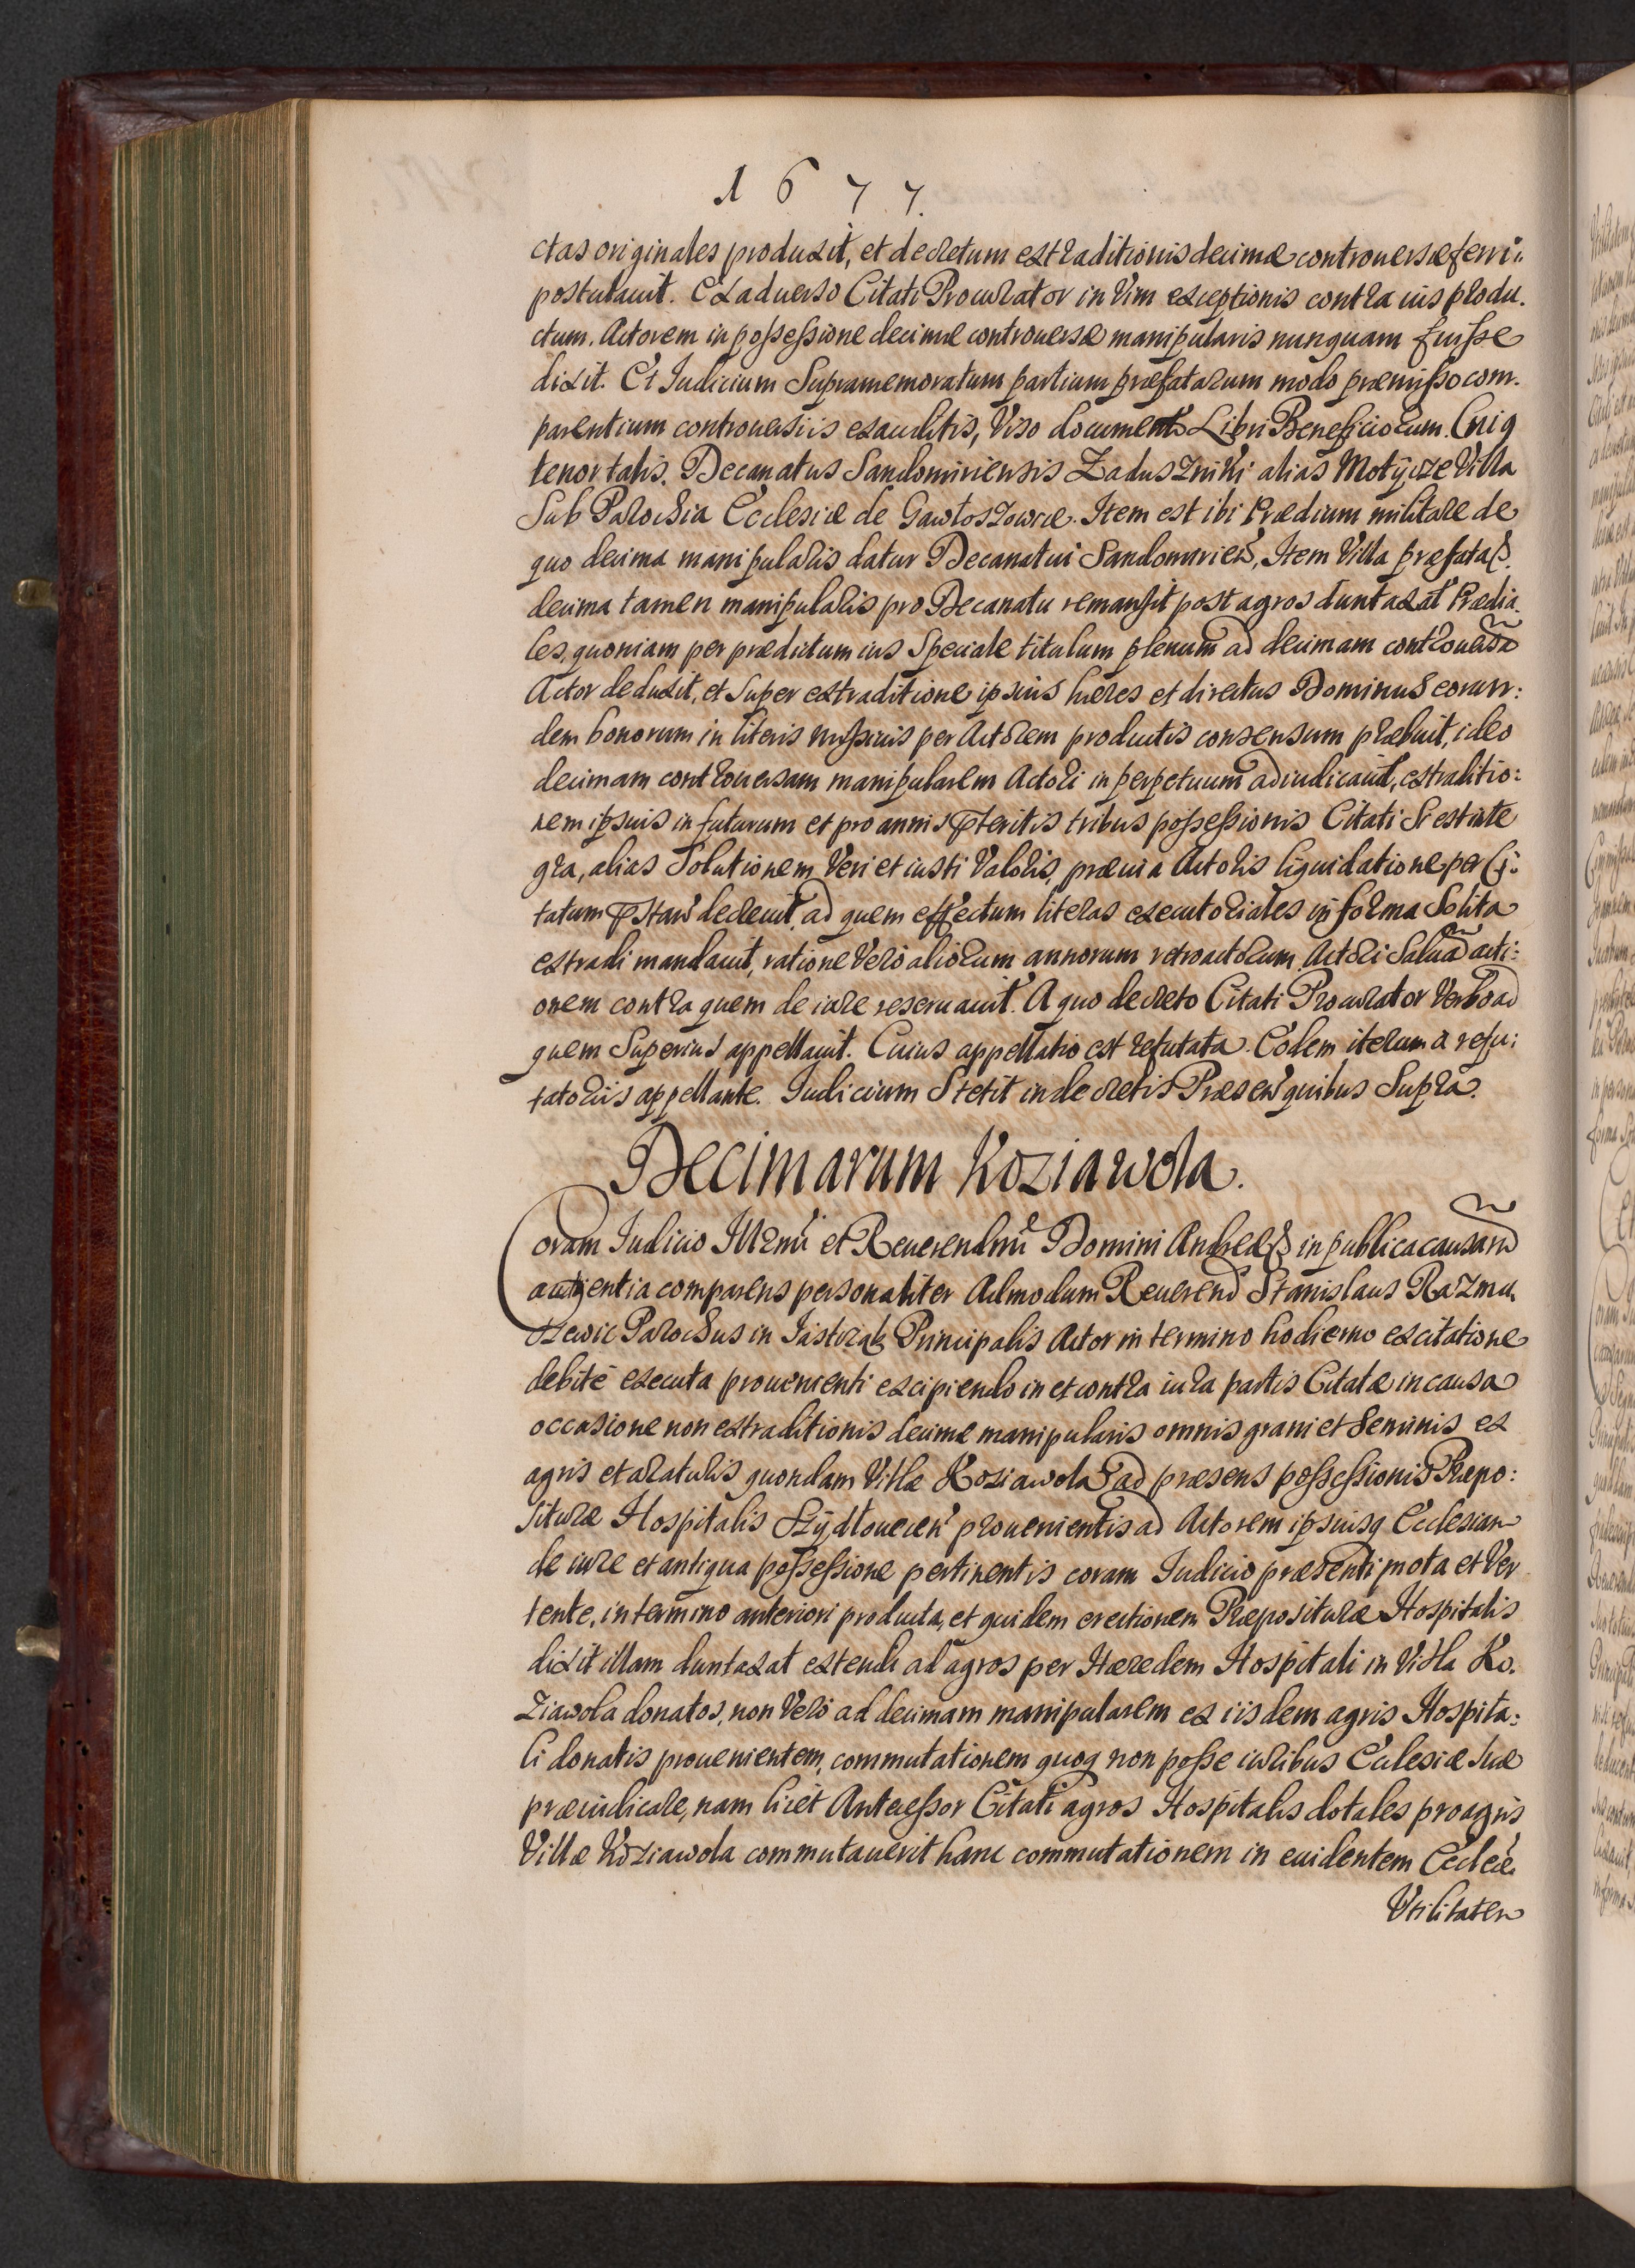 1677.
ctas originales produxit, et decretum extraditionis decimæ controuersæ ferri
postulauit. Ex aduerso Citati Procurator in Vim exceptionis contra ius produ-
ctum. Actorem in possessione decimæ controuersæ manipularis nunquam fuisse
dixit. Et Iudicium Supramemoratum partium præfatarum modo præmisso com-
parentium controuersiis exauditis, Viso documento Libri Beneficiorum. Cuig
tenor talis. Decanatus Sandomiriensis Zaduszniki alias Motÿcze Villa
Sub Parochia Ecclesiæ de Gawłoszowice. Item est ibi Prædium militare de
quo decima manipularis datur Decanatui Sandomirień, Item Villa præfata
decima tamen manipularis pro Decanatu remansit post agros duntaxat Prædia-
les, quoniam per prædictum ius Speciale titulum plenum ad decimam controuersã
Actor deduxit, et Super extraditione ipsius hæres et directus Dominus eorun:
dem bonorum in literis missiuis per Actorem productis consensum præbuit, ideo
decimam controuersam manipularem Actori in perpetuum adiudicauit, extraditio:
nem ipsius in futurum et pro annis pteritis tribus possessionis Citati Si est inte
gra, alias Solutionem Veri et iusti Valoris, præuia Actoris liquidatione per Ci:
tatum pstari decreuit, ad quem effectum literas executoriales in forma Solita
extradi mandauit, ratione Verò aliorum annorum retroactorum Actori Saluã acti:
onem contra quem de iure reseruauit. A quo decreto Citati Procurator Verbo ad
quem Superius appellauit. Cuius appellatio est refutata. Eodem iterum à refu:
tatoriis appellante. Iudicium Stetit in decretis Præseń quibus Supra.
Decimarum Koziawola.
Coram Iudicio Illrmi et Reuerendmi Domini Andreæ in publica causarũ
audientia comparens personaliter Admodum Reuerend Stanislaus Razmu
szewic Parochus in Jastrzab Principalis Actor in termino hodierno ex citatione
debitè executa prouenienti excipiendo in et contra iura partis Citatæ in causa
occasione non extraditionis decimæ manipularis omnis grani et Seminis ex
agris et araturis quondam Villæ Koziawola ad præsens possessionis Præpo:
Situræ Hospitalis Szÿdłouecen prouenientis ad Actorem ipsiusq Ecclesiam
de iure et antiqua possessione pertinentis coram Iudicio præsenti mota et Ver
tente, in termino anteriori producta, et quidem erectionem Præposituræ Hospitalis
dixit illam duntaxat extendi ad agros per Hæredem Hospitali in Villa Ko.
ziawola donatos, non Verò ad decimam manipularem ex iisdem agris Hospita:
li donatis prouenientem, commutationem quoq non posse iuribus Ecclesiæ Suæ
præiudicare, nam licèt Antecessor Citati agros Hospitalis dotales pro agris
Villæ Koziawola commutauerit hanc commutationem in euidentem Eccleæ
Vtilitatem